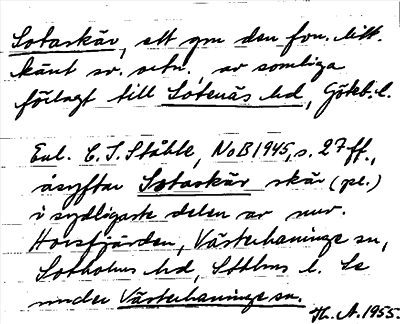 Sotaskär, ett gm den fvn. litt.
känt sv. ortn. av somliga
förlagt till Sotenäs hd, Götebl.
Enl. C. I. Ståhle, NoB 1945, s. 27 ff.,
åsyftar Sotaskär skär (pl.)
i sydligaste delen av nuv.
Horsfjärden, Västerhaninge sn,
Sotholms hd, Sthlms l. Se
under Västerhaninge sn.
Th. A. 1955.